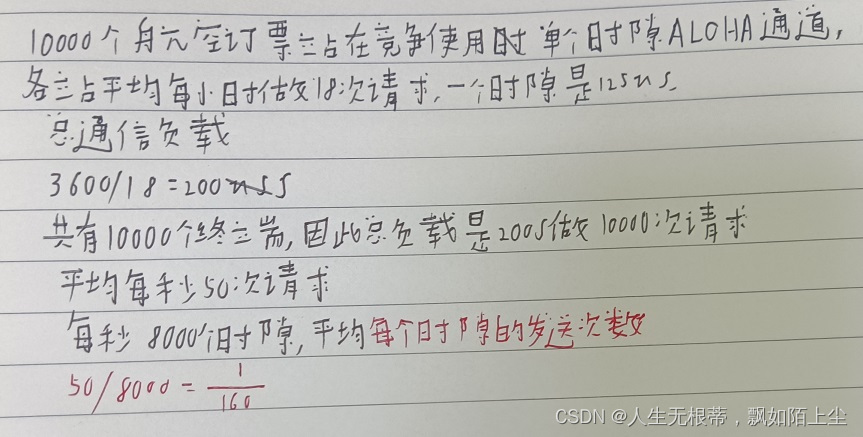 10000个航空订票站在竞争使用时单个时隙ALOHA通道,
各站平均每小时做18次请求,一个时隙是125us.
总通信负载
3600/18=200s
共有10000个终端,因此总负载是200s做10000次请求
平均每秒50次请求
每秒8000个时隙,平均每个时隙的发送次数
50/8000=1/160
CSDN @人生无根蒂,飘如陌上尘